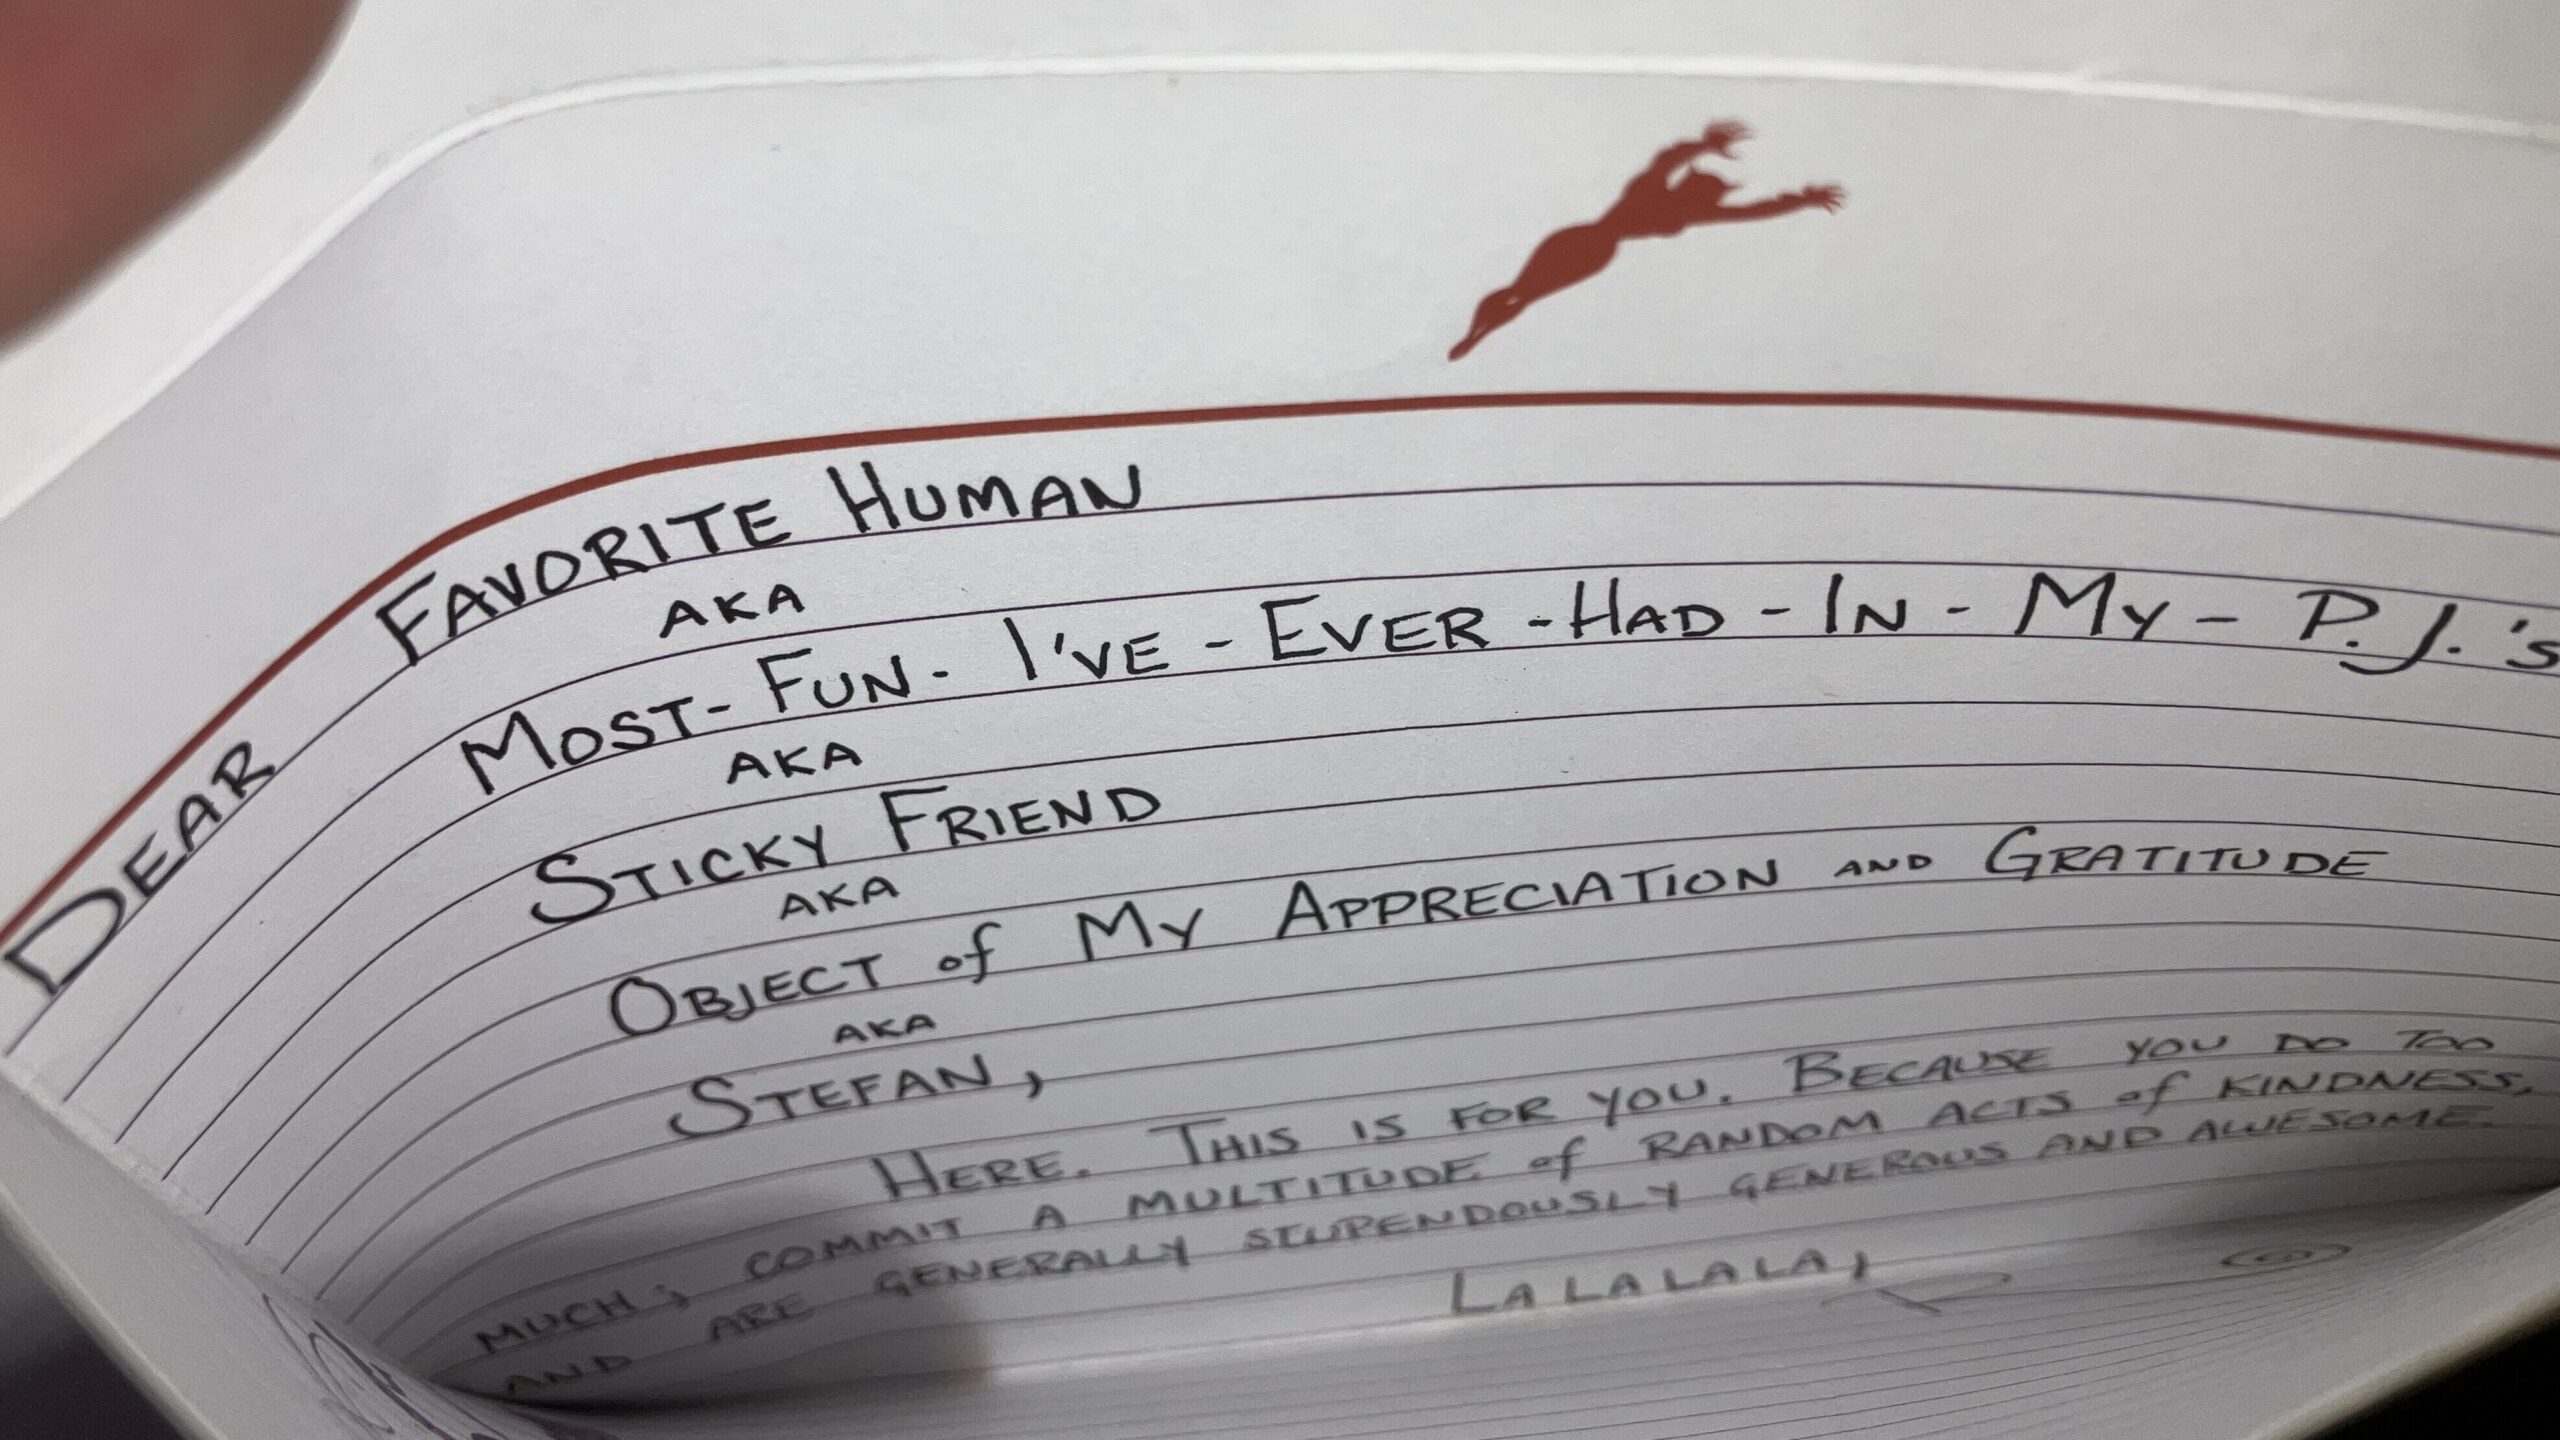 DEAR FAVORITE HUMAN
AKA
MOST-FUN-I'VE-EVER-HAD-IN-MY-P.J.'s
AKA
STICKY FRIEND
AKA
OBJECT of MY APPRECIATION AND GRATITUDE
AKA
STEFAN,
HERE. THIS IS FOR YOU. BECAUSE YOU DO TOO
MUCH, COMMIT A MULTITUDE of RANDOM ACTS of KINDNESS,
AND ARE GENERALLY STUPENDOUSLY GENEROUS AND AWESOME.
LA LA LA LA LA,